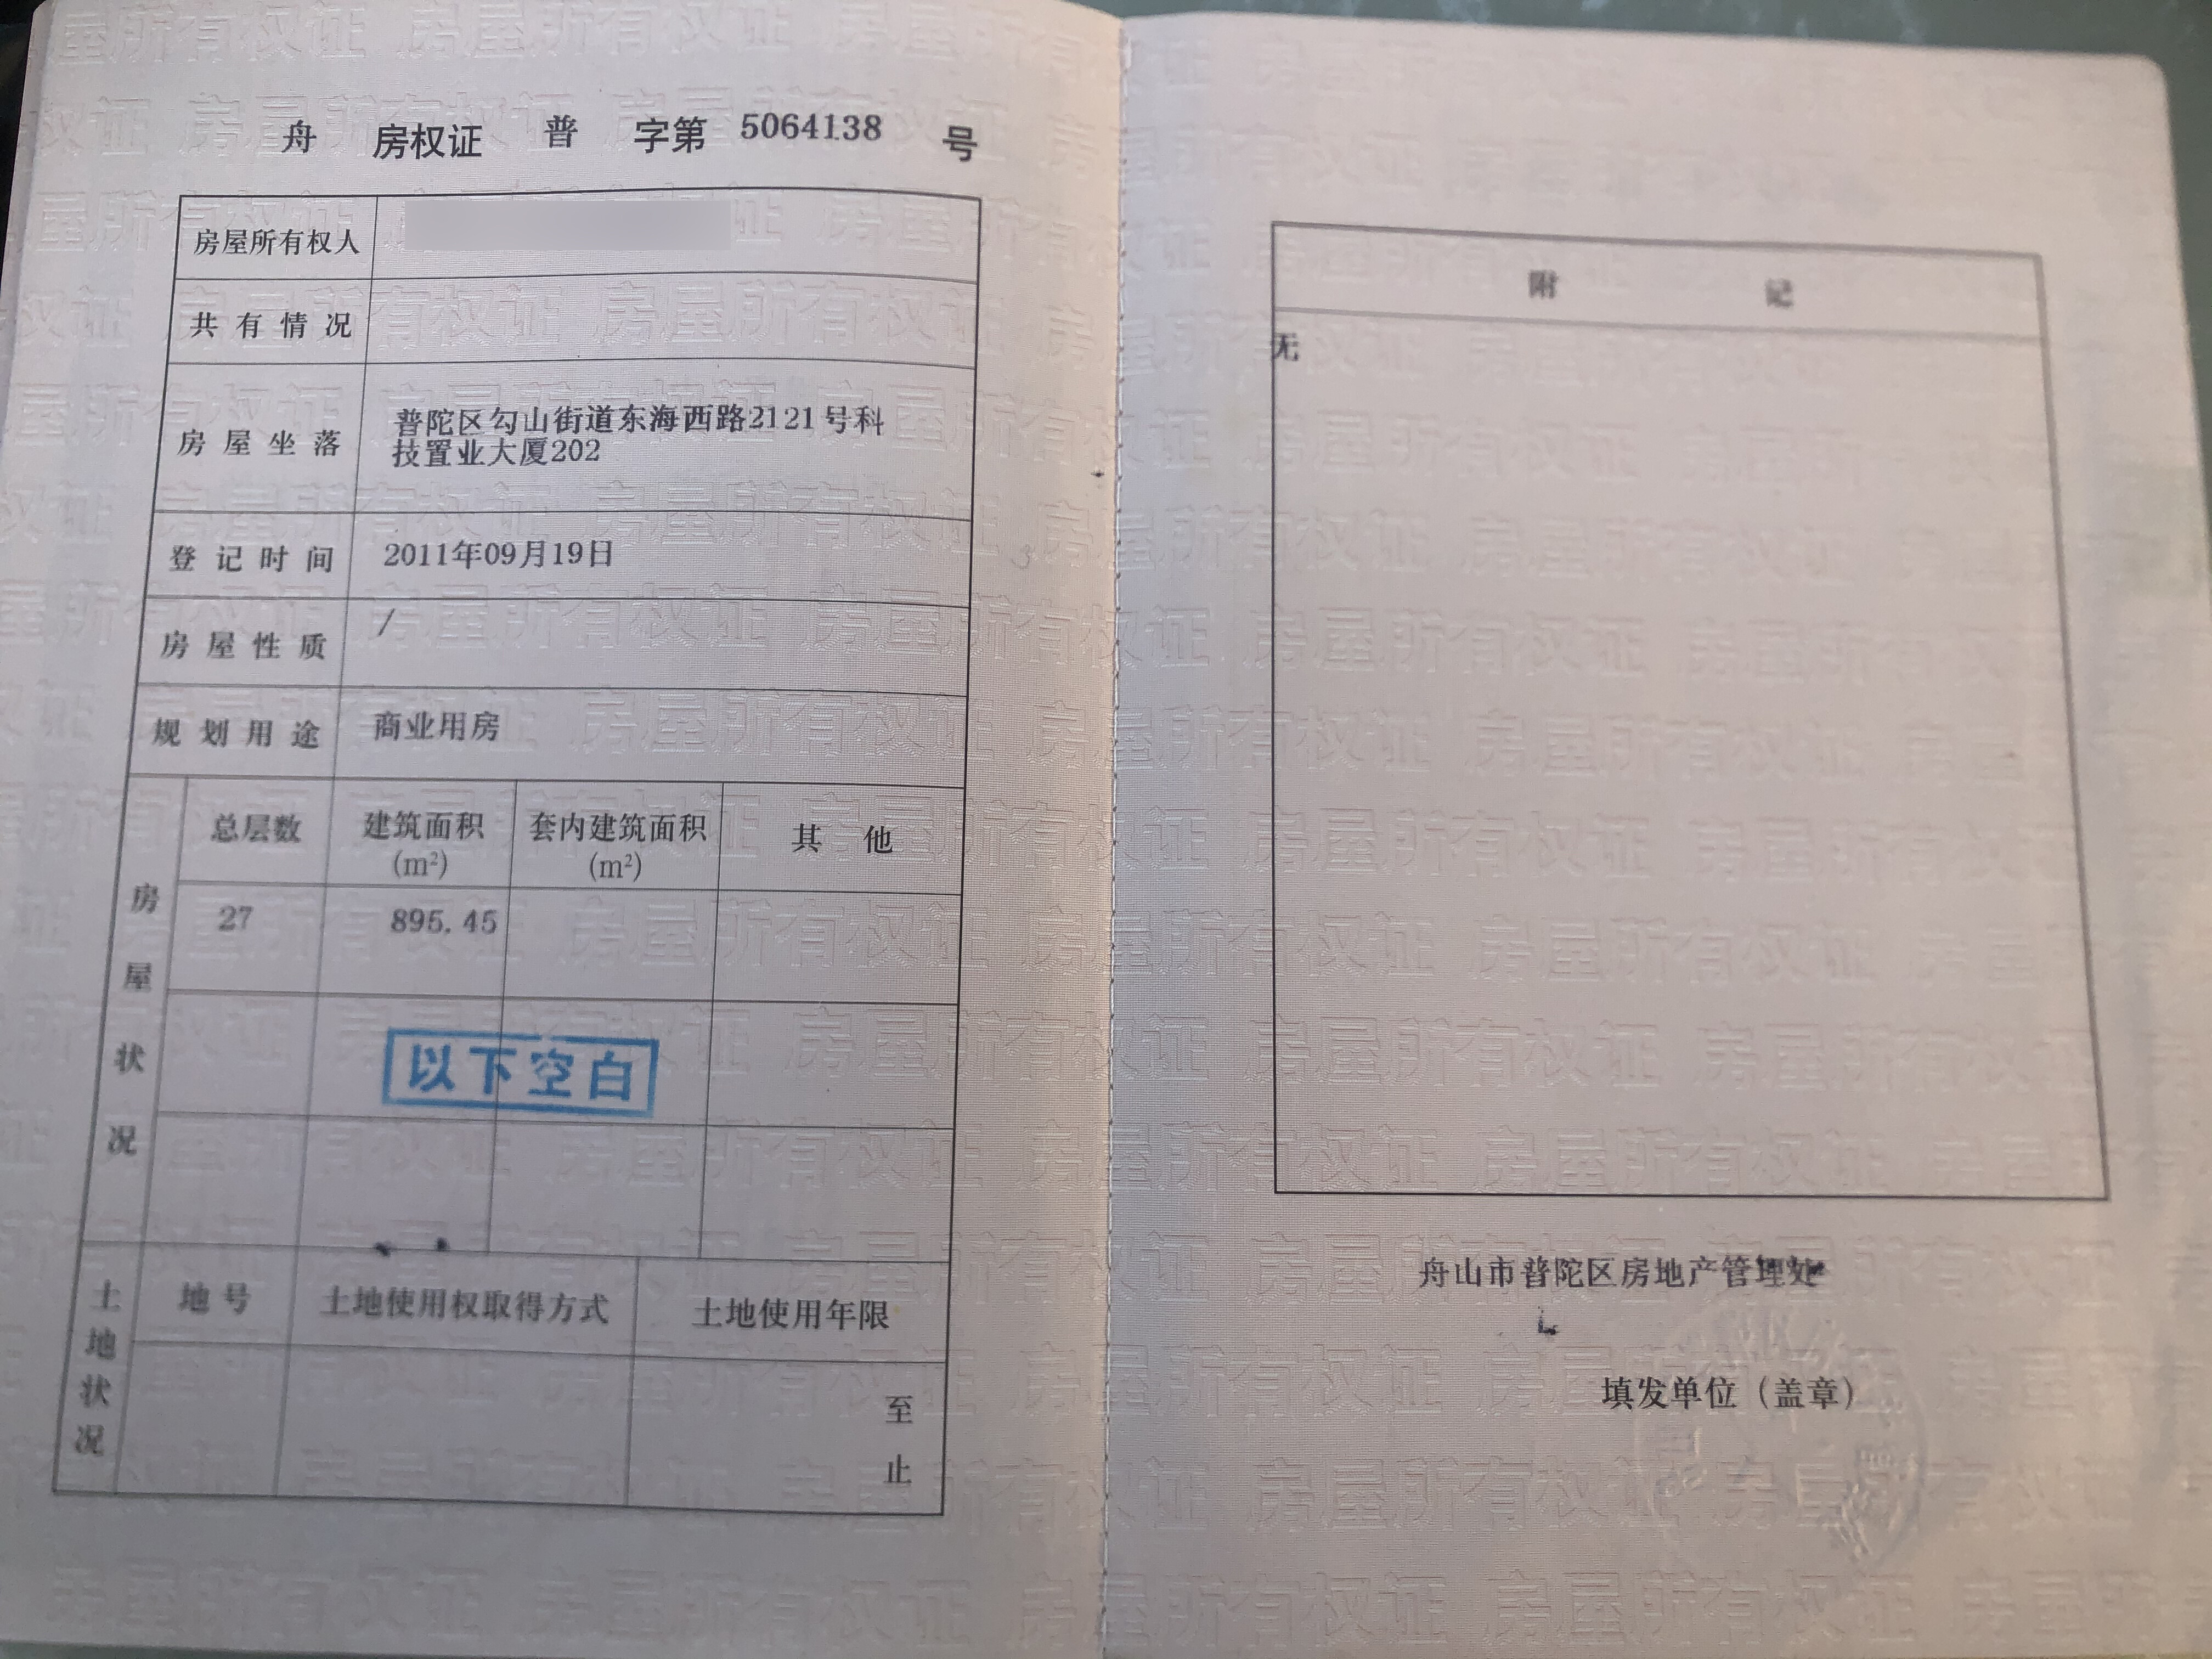 舟 房权证 普 字第 5064138 号
房屋所有权人
共有情况
房屋坐落 普陀区勾山街道东海西路2121号科
技置业大厦202
登记时间 2011年09月19日
房屋性质 /
规划用途 商业用房
房屋状况
总层数 建筑面积(m²) 套内建筑面积(m²) 其他
27 895.45
以下空白
土地状况
地号 土地使用权取得方式 土地使用年限
至
止
附记
无
舟山市普陀区房地产管理处
填发单位（盖章）